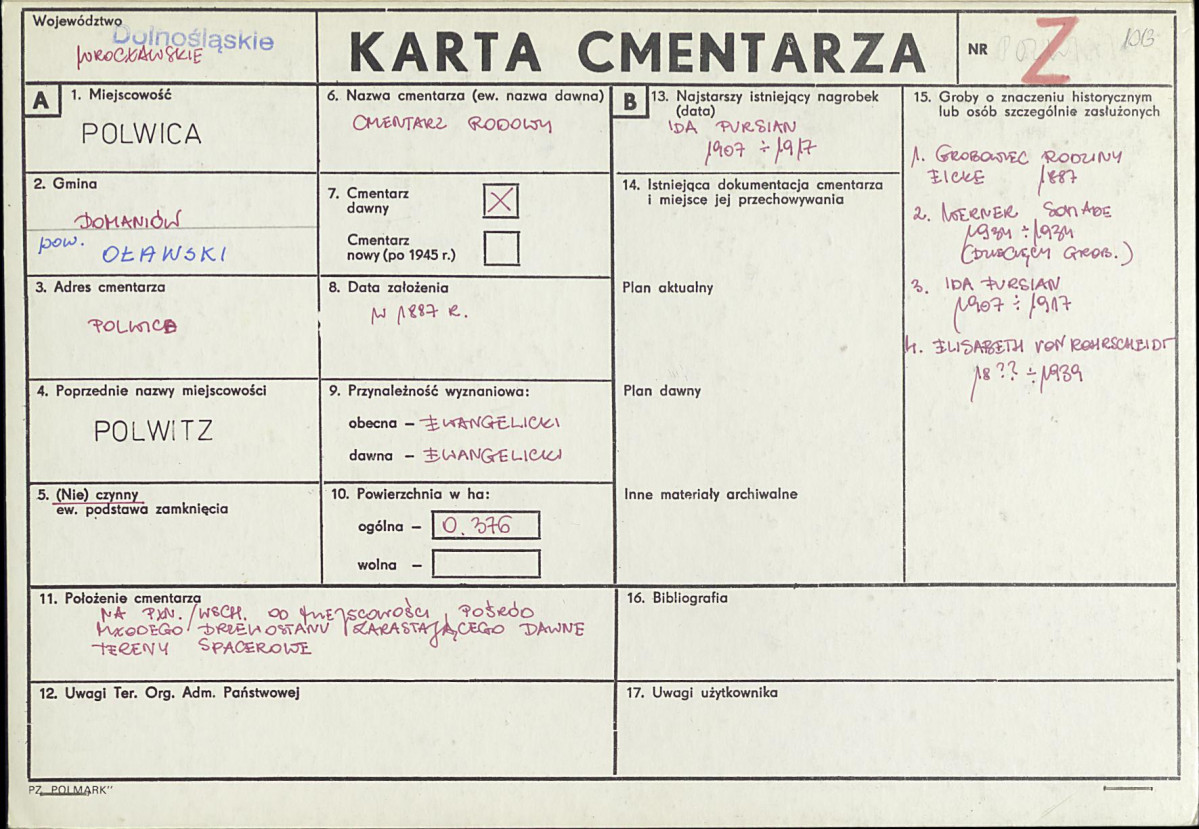 Województwo
Dolnośląskie
WROCŁAWSKIE
KARTA CMENTARZA
NR
Z
106
A
1. Miejscowość
POLWICA
2. Gmina
DOMANIÓW
pow. OŁAWSKI
3. Adres cmentarza
POLWICA
4. Poprzednie nazwy miejscowości
POLWITZ
5. (Nie) czynny
ew. podstawa zamknięcia
6. Nazwa cmentarza (ew. nazwa dawna)
CMENTARZ RODOWY
7. Cmentarz
dawny
X
Cmentarz
nowy (po 1945 r.)
8. Data założenia
W 1887 R.
9. Przynależność wyznaniowa:
obecna – EWANGELICKI
dawna – EWANGELICKI
10. Powierzchnia w ha:
ogólna – 0.376
wolna –
11. Położenie cmentarza
NA PŁN./WSCH. OD MIEJSCOWOŚCI, POŚRÓD
MŁODEGO DRZEWOSTANU ZARASTAJĄCEGO DAWNE
TERENY SPACEROWE
12. Uwagi Ter. Org. Adm. Państwowej
B
13. Najstarszy istniejący nagrobek
(data)
IDA PURSIAN
1907 ÷ 1917
14. Istniejąca dokumentacja cmentarza
i miejsce jej przechowywania
Plan aktualny
Plan dawny
Inne materiały archiwalne
15. Groby o znaczeniu historycznym
lub osób szczególnie zasłużonych
1. GROBOWIEC RODZINY
EICKE 1887
2. WERNER SCHADE
1934 ÷ 1934
(DZIECIĘCY GROB.)
3. IDA PURSIAN
1907 ÷ 1917
4. ELISABETH VON ROHRSCHEIDT
18?? ÷ 1939
16. Bibliografia
17. Uwagi użytkownika
PZ „POLMARK"